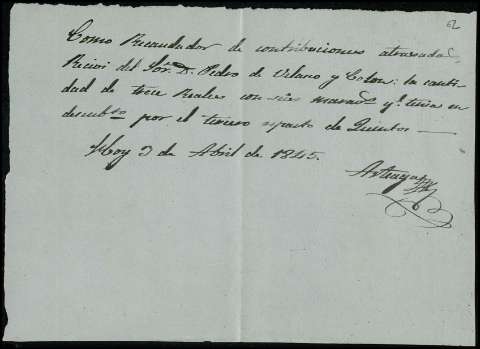 62
Como Recaudador de contribuciones atrasadas,
Recivi del Sor. D. Pedro de Velasco y la canti-
dad de trece Reales con seis maravs. q.e tenia en
descubto por el tercero reparto de Quintos —
Hoy 3 de Abril de 1845.